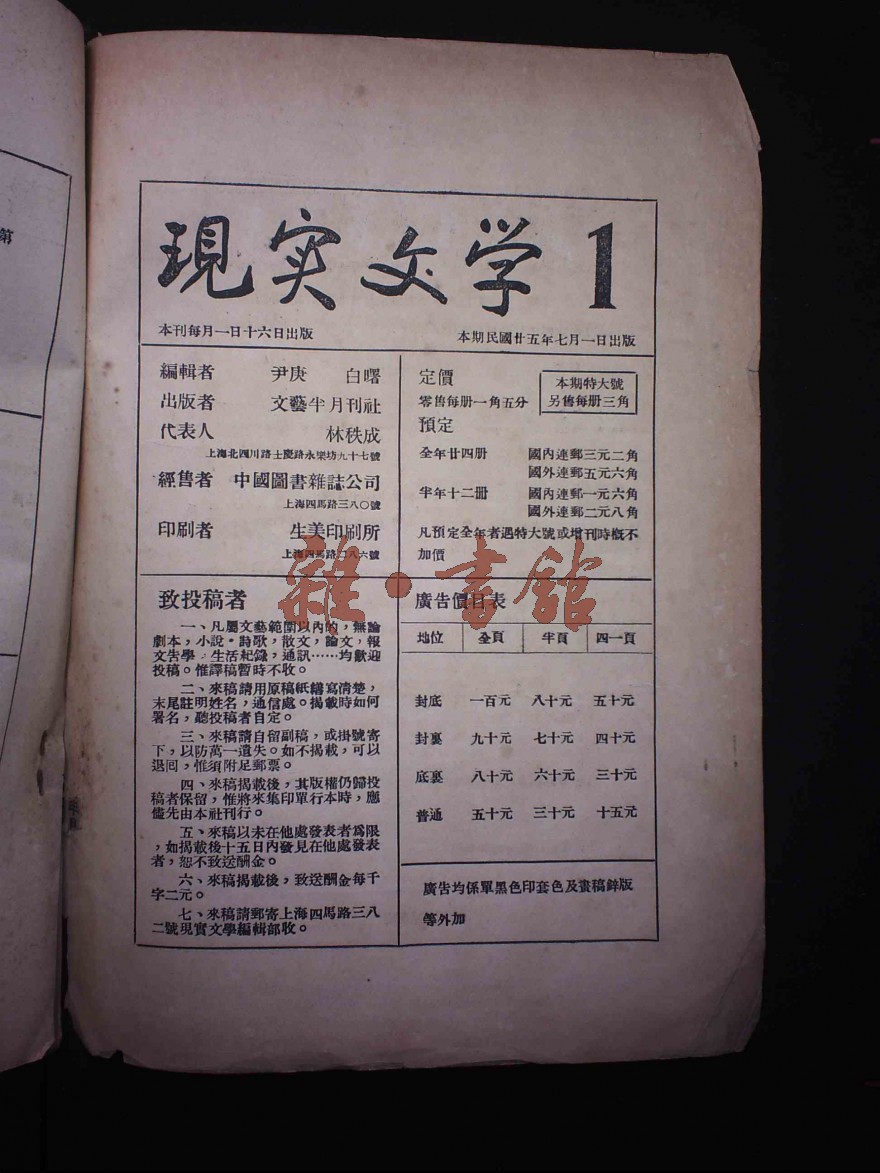 第
現实文学 1
本刊每月一日十六日出版
本期民國廿五年七月一日出版
編輯者 尹庚 白曙
出版者 文藝半月刊社
代表人 林秩成
上海北四川路士慶路永樂坊九十七號
經售者 中國圖書雜誌公司
上海四馬路三八〇號
印刷者 生美印刷所
上海四馬路二八六號
定價
本期特大號
零售每册一角五分
另售每册三角
預定
全年廿四册 國內連郵三元二角
國外連郵五元六角
半年十二冊 國內連郵一元六角
國外連郵二元八角
凡預定全年者遇特大號或增刊時概不
加價
致投稿者
一、凡屬文藝範圍以內的，無論
劇本，小說，詩歌，散文，論文，報
文告學，生活紀錄，通訊……均歡迎
投稿。惟譯稿暫時不收。
二、來稿請用原稿紙繕寫清楚，
末尾註明姓名，通信處。揭載時如何
署名，聽投稿者自定。
三、來稿請自留副稿，或掛號寄
下，以防萬一遺失。如不揭載，可以
退囘，惟須附足郵票。
四、來稿揭載後，其版權仍歸投
稿者保留，惟將來集印單行本時，應
儘先由本社刊行。
五、來稿以未在他處發表者爲限
，如揭載後十五日內發見在他處發表
者，恕不致送酬金。
六、來稿揭載後，致送酬金每千
字二元。
七、來稿請郵寄上海四馬路三八
二號現實文學編輯部收。
廣告價目表
地位 全頁 半頁 四一頁
封底 一百元 八十元 五十元
封裏 九十元 七十元 四十元
底裏 八十元 六十元 三十元
普通 五十元 三十元 十五元
廣告均係單黑色印套色及畫稿鋅版
等外加
雜·書館